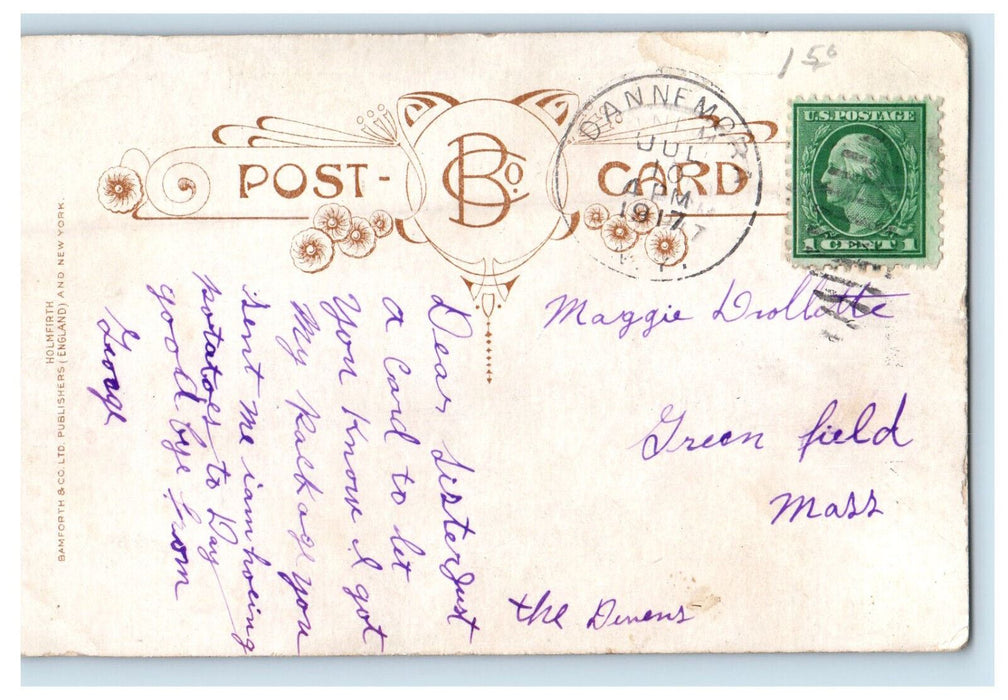 15¢
POST-
B Co.
CARD
DANNEMORA
JUL
10
4 PM
1917
N.Y.
U.S. POSTAGE
1 CENT 1
HOLMFIRTH
BAMFORTH & CO. LTD. PUBLISHERS (ENGLAND) AND NEW YORK.
Dear Sister Just
a Card to let
You Know I got
My Package you
sent me iam hoeing
potatoes to Day
goold bye from
George
Maggie Drollette
Green field
Mass
the Devens